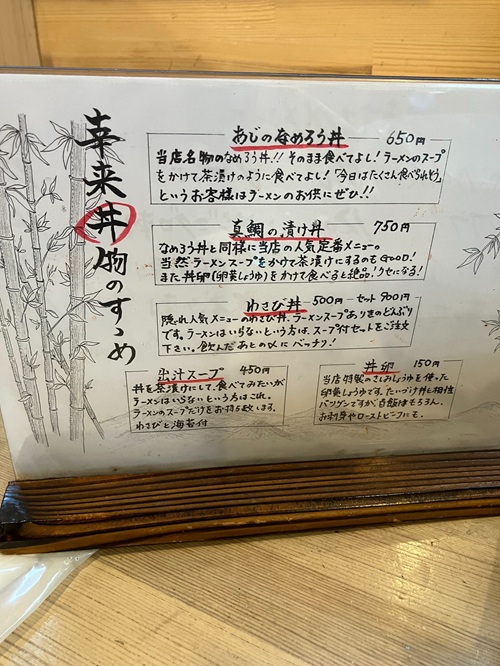 幸来丼物のすゝめ
あじのなめろう丼 650円
当店名物のなめろう丼!! そのまま食べてよし! ラーメンのスープ
をかけて茶漬けのように食べてよし! 「今日はたくさん食べられそう」
というお客様はラーメンのお供にぜひ!!
真鯛の漬け丼 750円
なめろう丼と同様に当店の人気定番メニュー。
当然ラーメンスープをかけて茶漬けにするのもGOOD!
また丼卵(卵黄しょうゆ)をかけて食べると絶品! クセになる!
わさび丼 500円 セット 900円
隠れ人気メニューのわさび丼、ラーメンスープありきのどんぶり
です。ラーメンはいらないという方は、スープ付セットをご注文
下さい。飲んだあとの〆にバッチリ!
出汁スープ 450円
丼を茶漬けにして、食べてみたいが
ラーメンはいらないという方はこれ。
ラーメンのスープだけをお持ち致します。
わさびと海苔付
丼卵 150円
当店特製のさしみしょうゆを使った
卵黄しょうゆです。たいづけ丼と相性
バツグンですが白飯はもちろん、
お刺身やローストビーフにも。